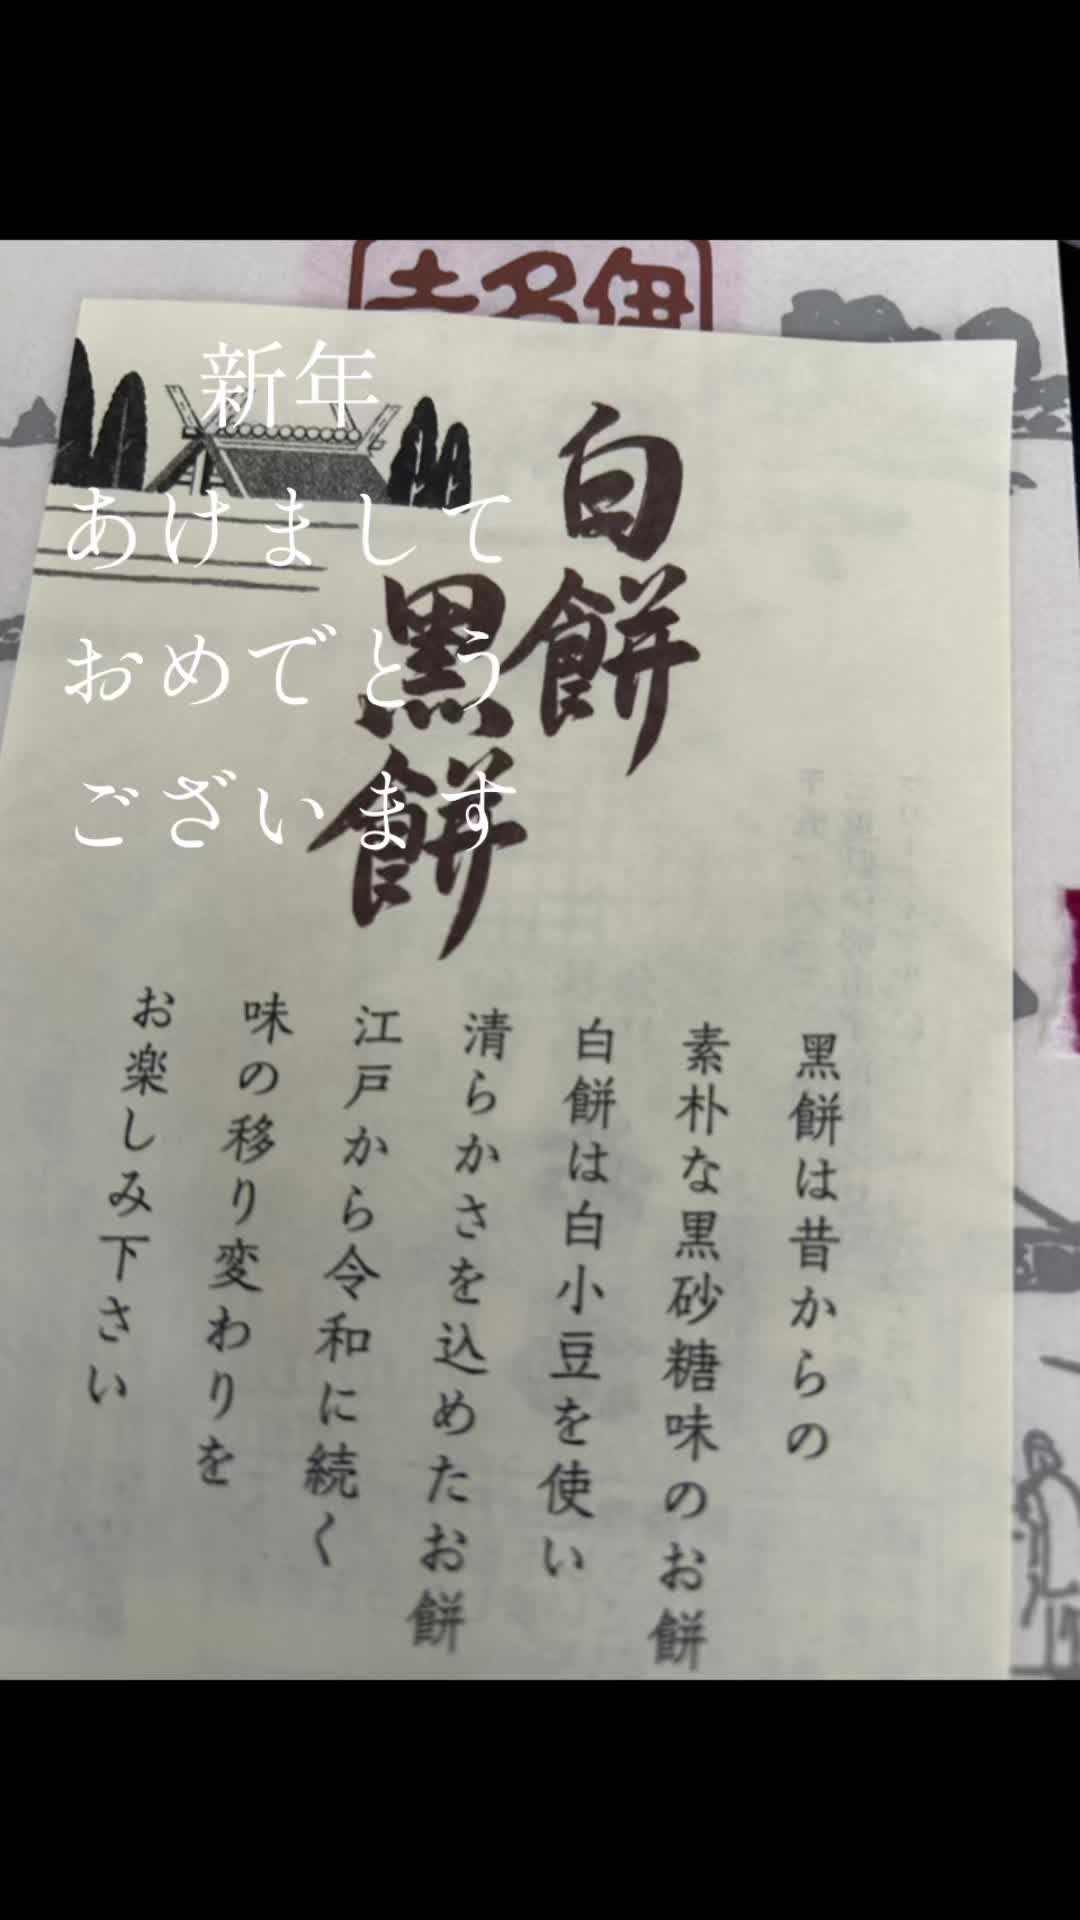 伊勢名
新年
あけまして
おめでとう
ございます
白餅
黑餅
黑餅は昔からの
素朴な黒砂糖味のお餅
白餅は白小豆を使い
清らかさを込めたお餅
江戸から令和に続く
味の移り変わりを
お楽しみ下さい